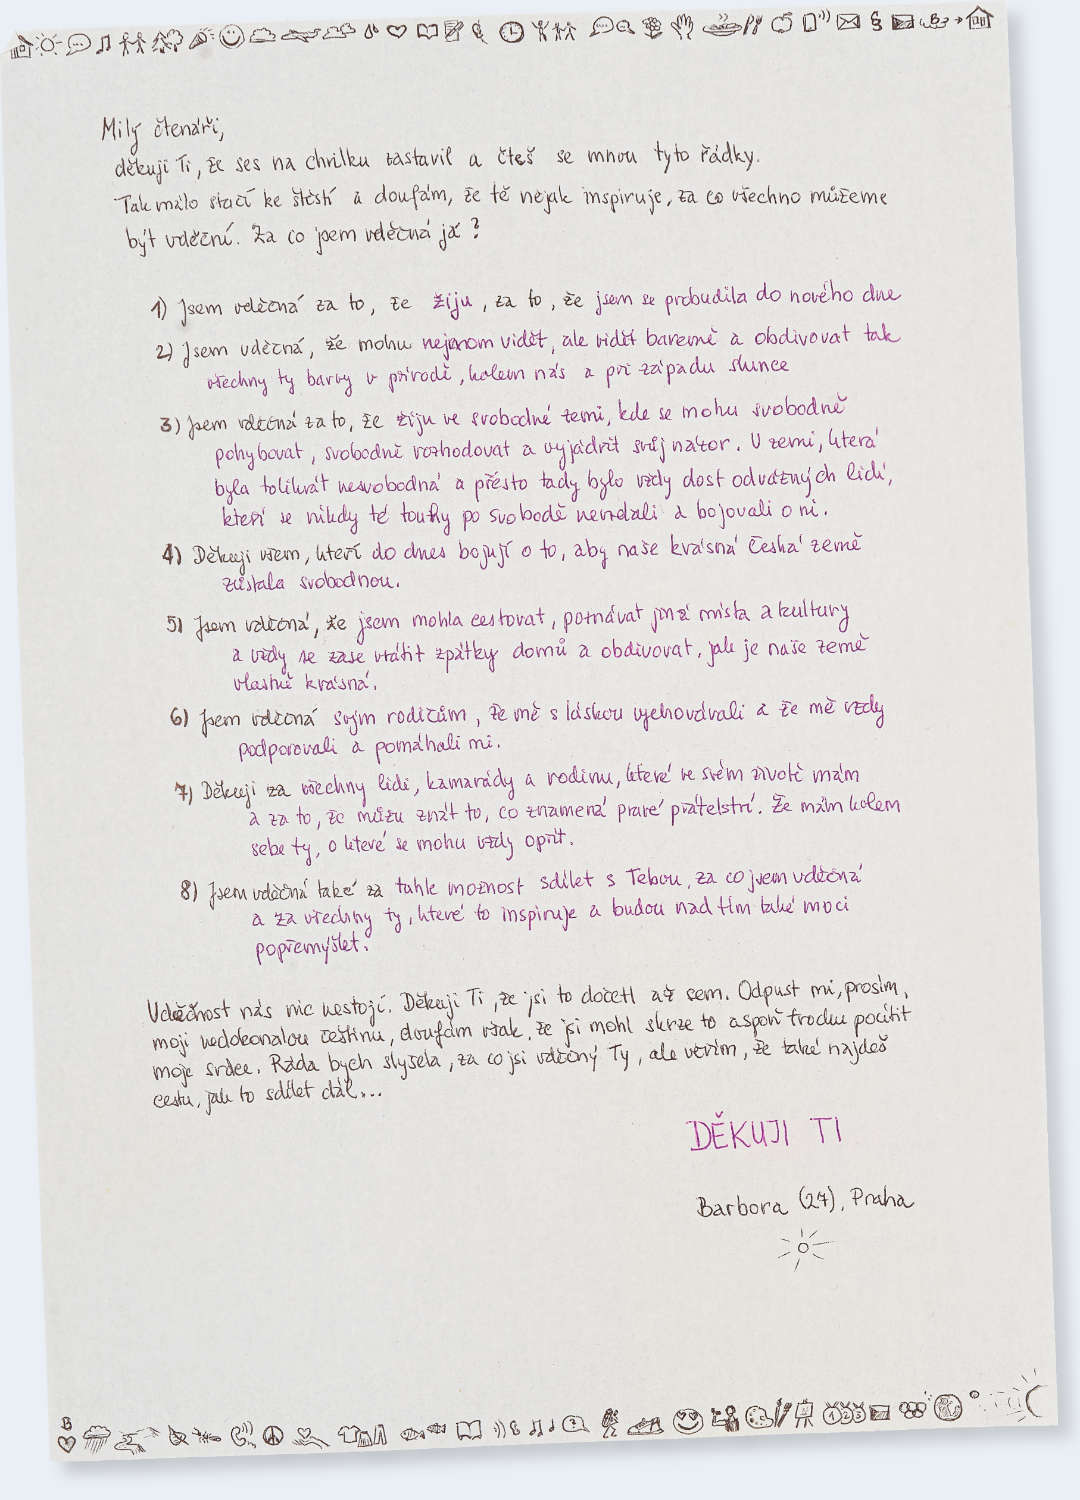 Milý čtenáři,
děkuji Ti, že ses na chvilku zastavil a čteš se mnou tyto řádky.
Tak málo stačí ke štěstí a doufám, že tě nějak inspiruje, za co všechno můžeme
být vděční. Za co jsem vděčná já?
1) Jsem vděčná za to, že žiju, za to, že jsem se probudila do nového dne
2) Jsem vděčná, že mohu nejenom vidět, ale vidět barevně a obdivovat tak
všechny ty barvy v přírodě, kolem nás a při západu slunce
3) Jsem vděčná za to, že žiju ve svobodné zemi, kde se mohu svobodně
pohybovat, svobodně rozhodovat a vyjádřit svůj názor. V zemi, která
byla tolikrát nesvobodná a přesto tady bylo vždy dost odvážných lidí,
kteří se nikdy té touhy po svobodě nevzdali a bojovali o ni.
4) Děkuji všem, kteří do dnes bojují o to, aby naše krásná Česká země
zůstala svobodnou.
5) Jsem vděčná, že jsem mohla cestovat, poznávat jiná místa a kultury
a vždy se zase vrátit zpátky domů a obdivovat, jak je naše země
vlastně krásná.
6) Jsem vděčná svým rodičům, že mě s láskou vychovávali a že mě vždy
podporovali a pomáhali mi.
7) Děkuji za všechny lidi, kamarády a rodinu, které ve svém životě mám
a za to, že můžu znát to, co znamená pravé přátelství. Že mám kolem
sebe ty, o které se mohu vždy opřít.
8) Jsem vděčná také za tuhle možnost sdílet s Tebou, za co jsem vděčná
a za všechny ty, které to inspiruje a budou nad tím také moci
popřemýšlet.
Vděčnost nás nic nestojí. Děkuji Ti, že jsi to dočetl až sem. Odpust mi, prosím,
moji nedokonalou češtinu, doufám však, že jsi mohl skrze to aspoň trochu pocítit
moje srdce. Ráda bych slyšela, za co jsi vděčný Ty, ale věřím, že také najdeš
cestu, jak to sdílet dál...
DĚKUJI TI
Barbora (27), Praha